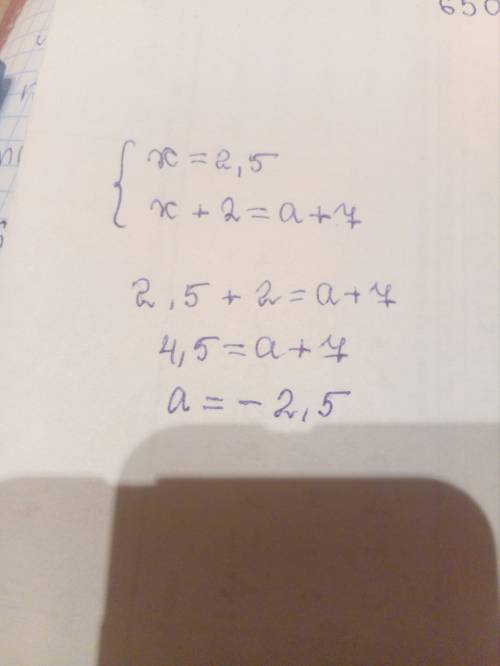 650
{ x = 2,5
x + 2 = a + 7
2,5 + 2 = a + 7
4,5 = a + 7
a = - 2,5